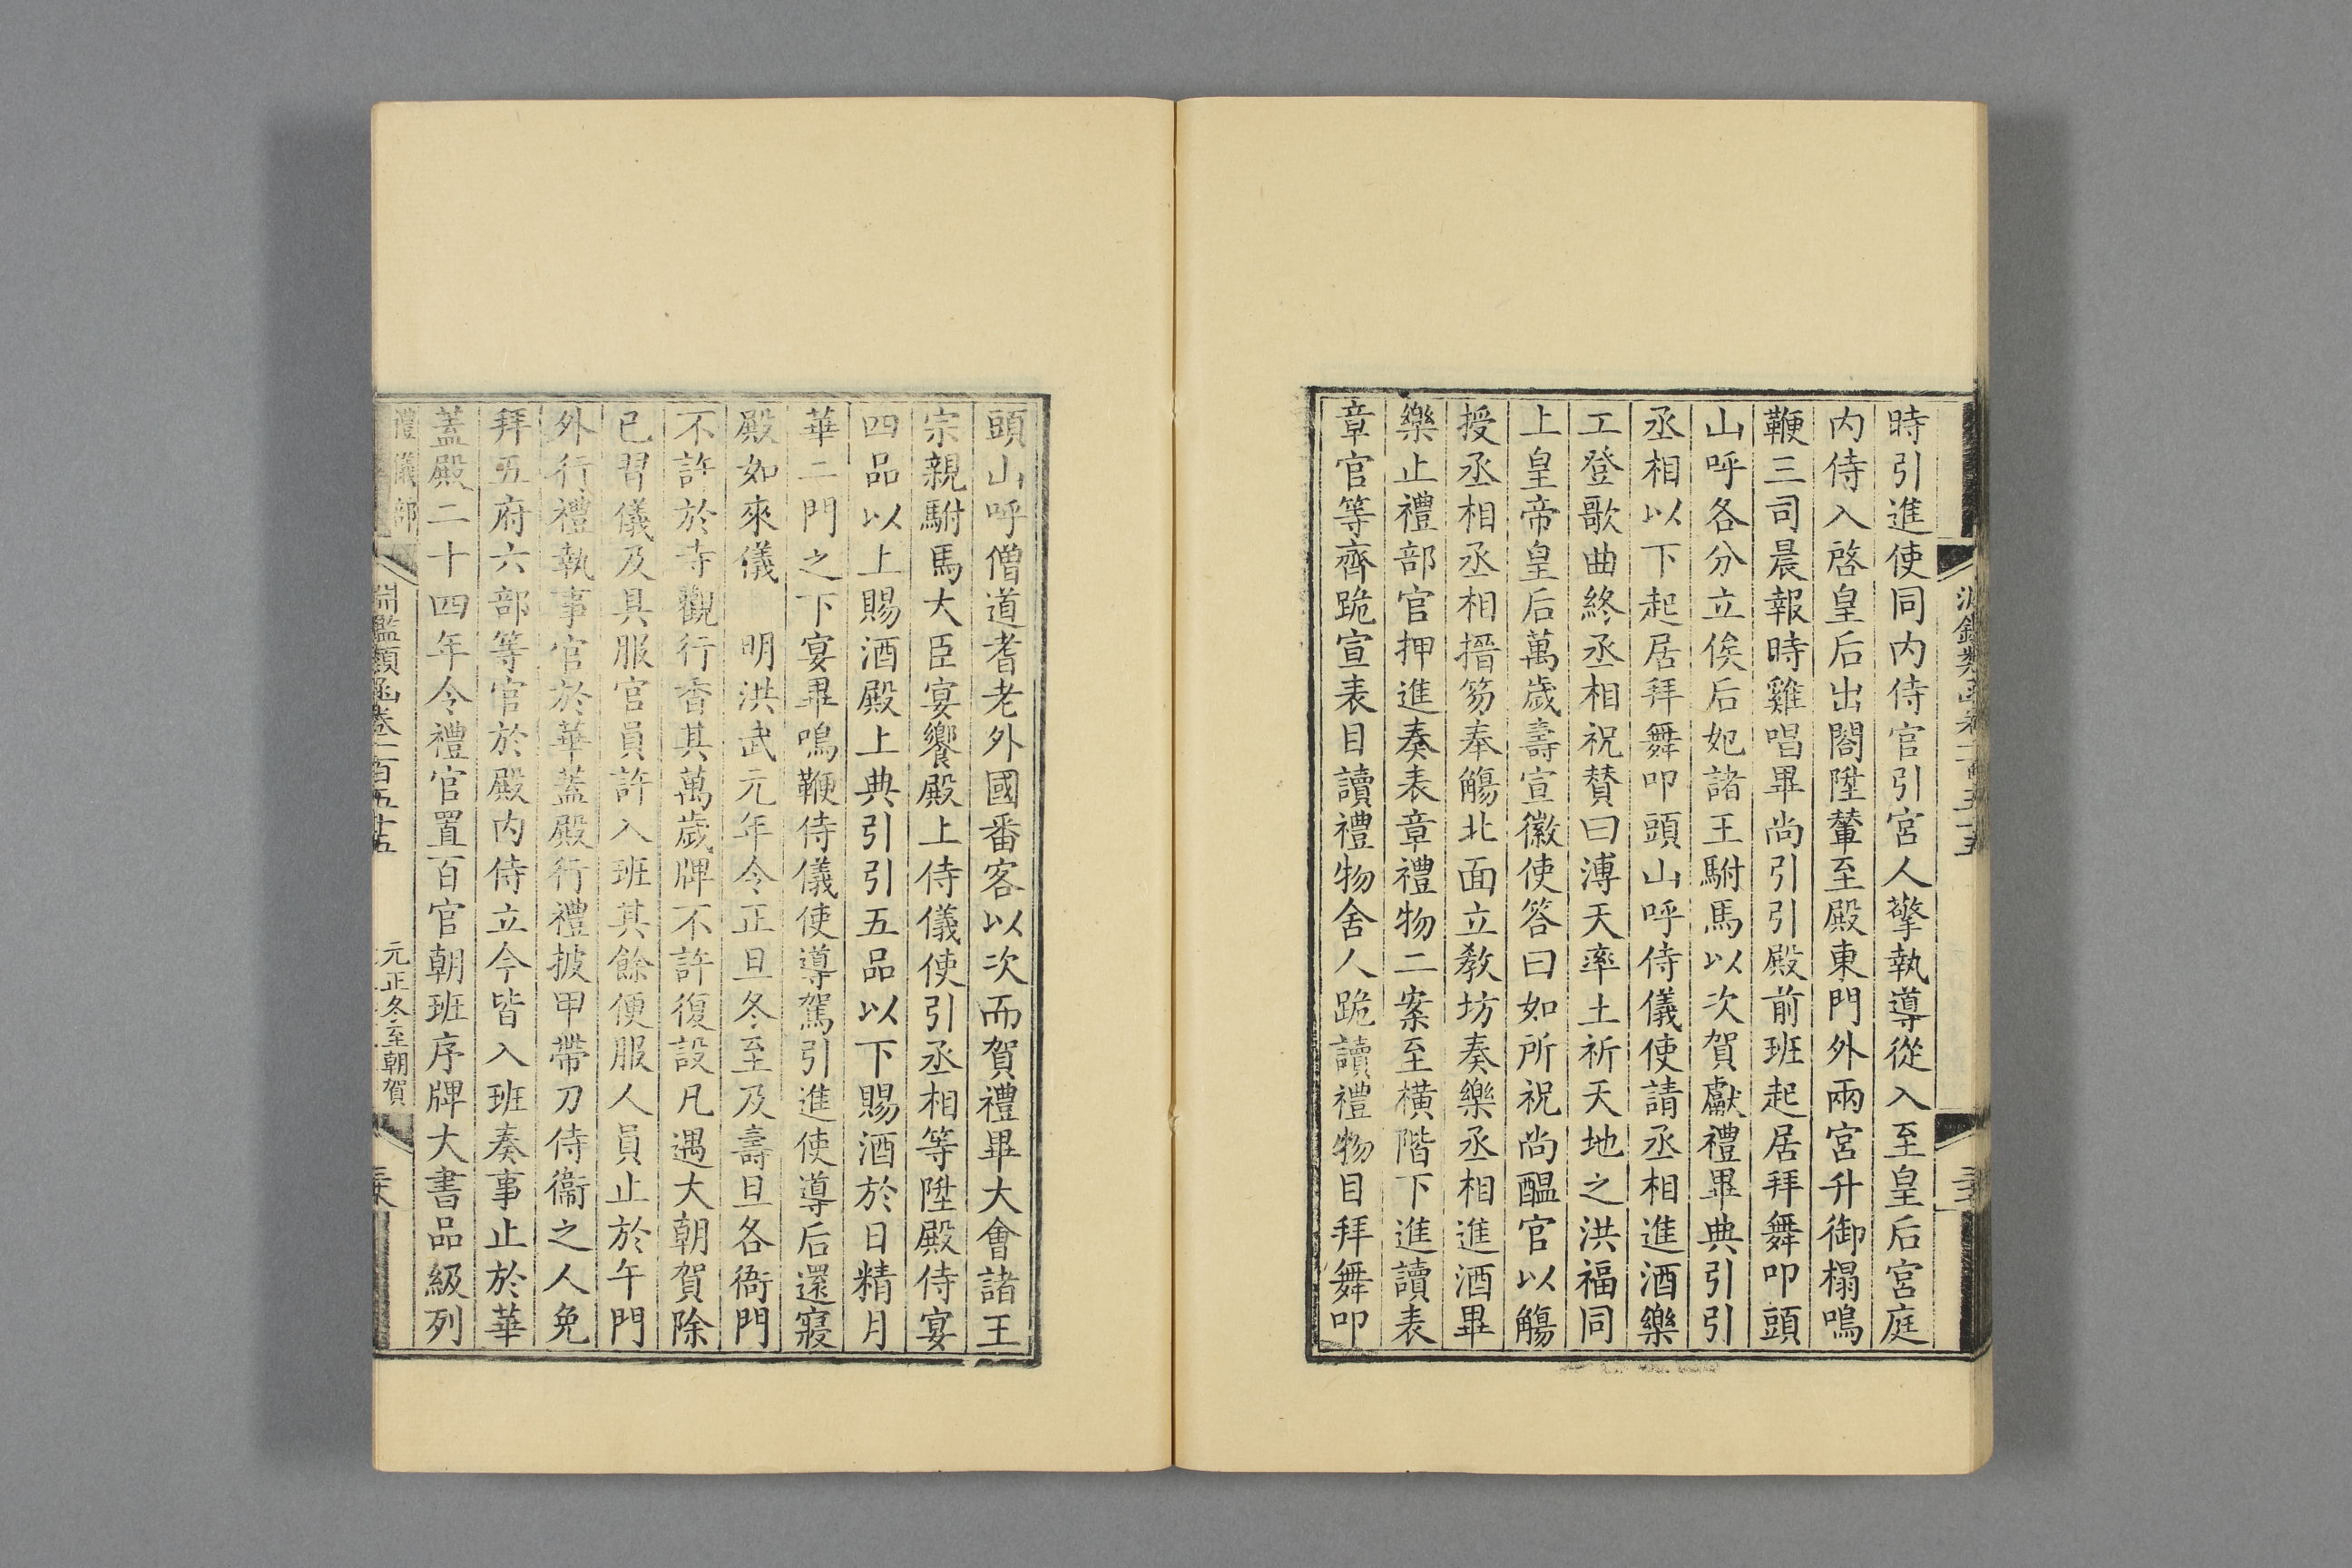 時引進使同内侍官引宮人擎執導從入至皇后宮庭
内侍入啓皇后出閤陞輦至殿東門外兩宮升御榻鳴
鞭三司晨報時雞唱畢尚引引殿前班起居拜舞叩頭
山呼各分立俟后妃諸王駙馬以次賀獻禮畢典引引
丞相以下起居拜舞叩頭山呼侍儀使請丞相進酒樂
工登歌曲終丞相祝賛曰溥天率土祈天地之洪福同
上皇帝皇后萬歲壽宣徽使答曰如所祝尚醖官以觴
授丞相丞相搢笏奉觴北面立敎坊奏樂丞相進酒畢
樂止禮部官押進奏表章禮物二案至橫階下進讀表
章官等齊跪宣表目讀禮物舍人跪讀禮物目拜舞叩
頭山呼僧道耆老外國番客以次而賀禮畢大會諸王
宗親駙馬大臣宴饗殿上侍儀使引丞相等陞殿侍宴
四品以上賜酒殿上典引引五品以下賜酒於日精月
華二門之下宴畢鳴鞭侍儀使導駕引進使導后還寢
殿如來儀 明洪武元年令正旦冬至及壽旦各衙門
不許於寺觀行香其萬歲牌不許復設凡遇大朝賀除
已習儀及具服官員許入班其餘便服人員止於午門
外行禮執事官於華蓋殿行禮披甲帶刀侍衞之人免
拜五府六部等官於殿内侍立今皆入班奏事止於華
蓋殿二十四年令禮官置百官朝班序牌大書品級列
禮儀部 淵鑑類函卷一百五十五 元正冬至朝賀